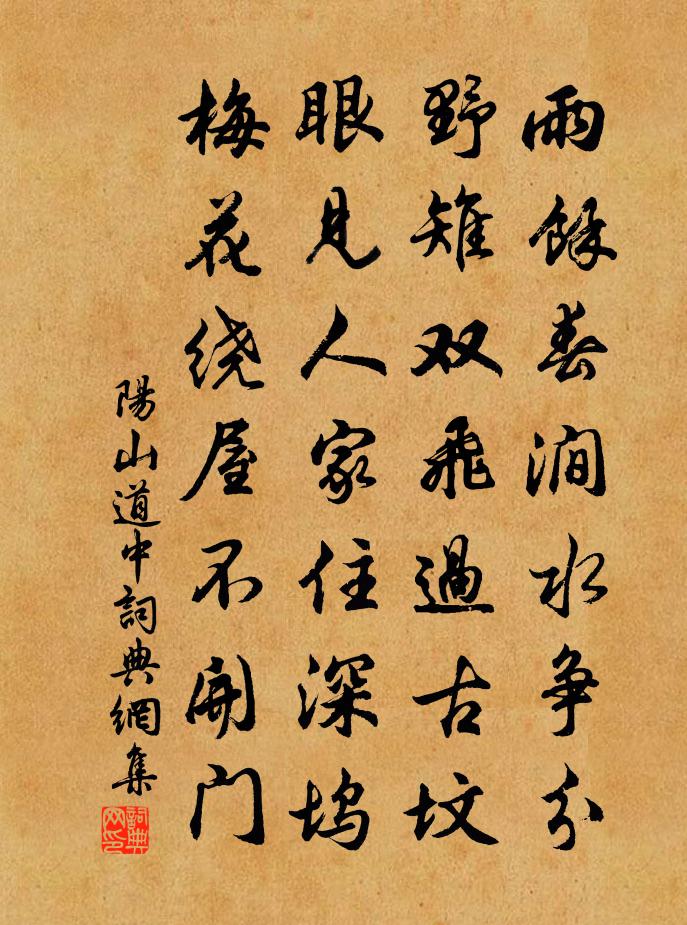 雨餘春澗水争分
野雉双飛過古坟
眼見人家住深坞
梅花绕屋不開门
陽山道中詞典網集
詞典網印